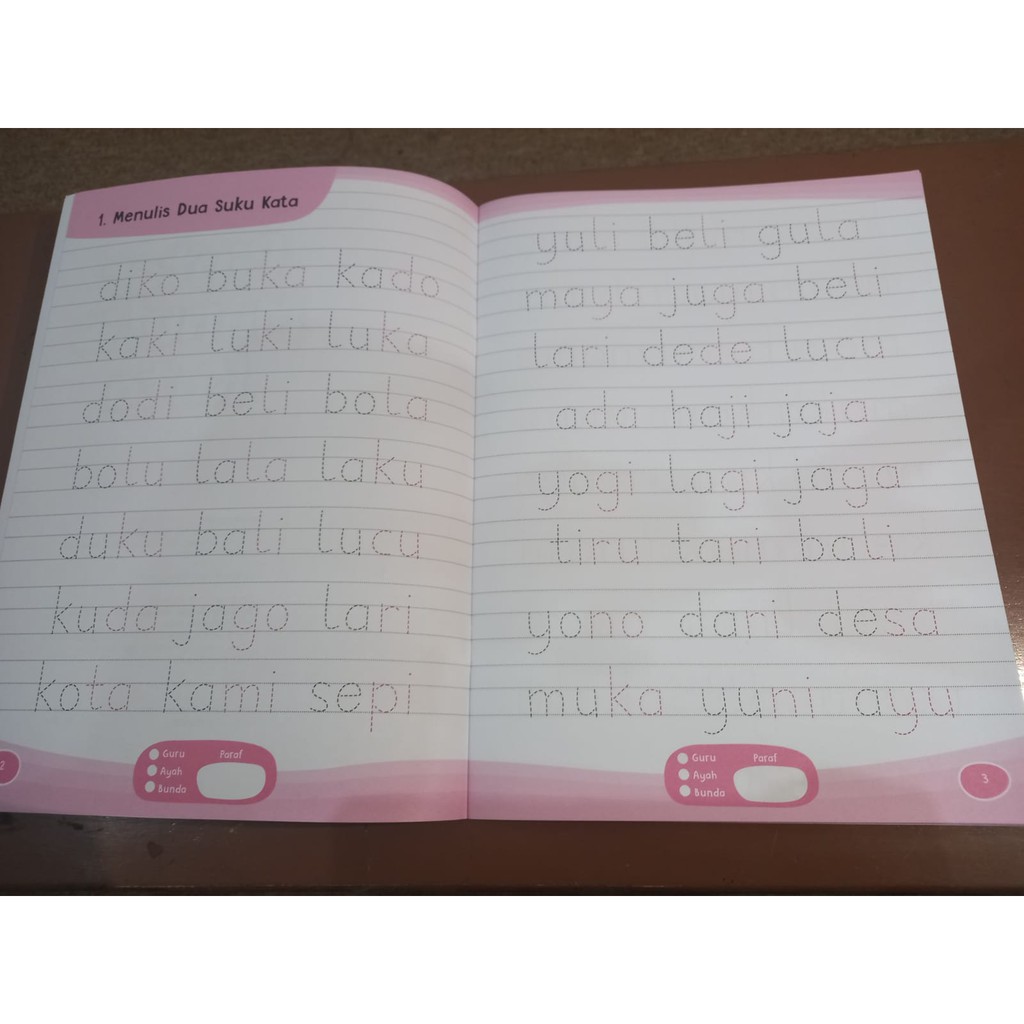 1. Menulis Dua Suku Kata
diko buka kado
kaki luki luka
dodi beli bola
bolu lala laku
duku bali lucu
kuda jago lari
kota kami sepi
Guru Paraf
Ayah
Bunda
2
yuli beli gula
maya juga beli
lari dede lucu
ada haji jaja
yogi lagi jaga
tiru tari bali
yono dari desa
muka yuni ayu
Guru Paraf
Ayah
Bunda
3